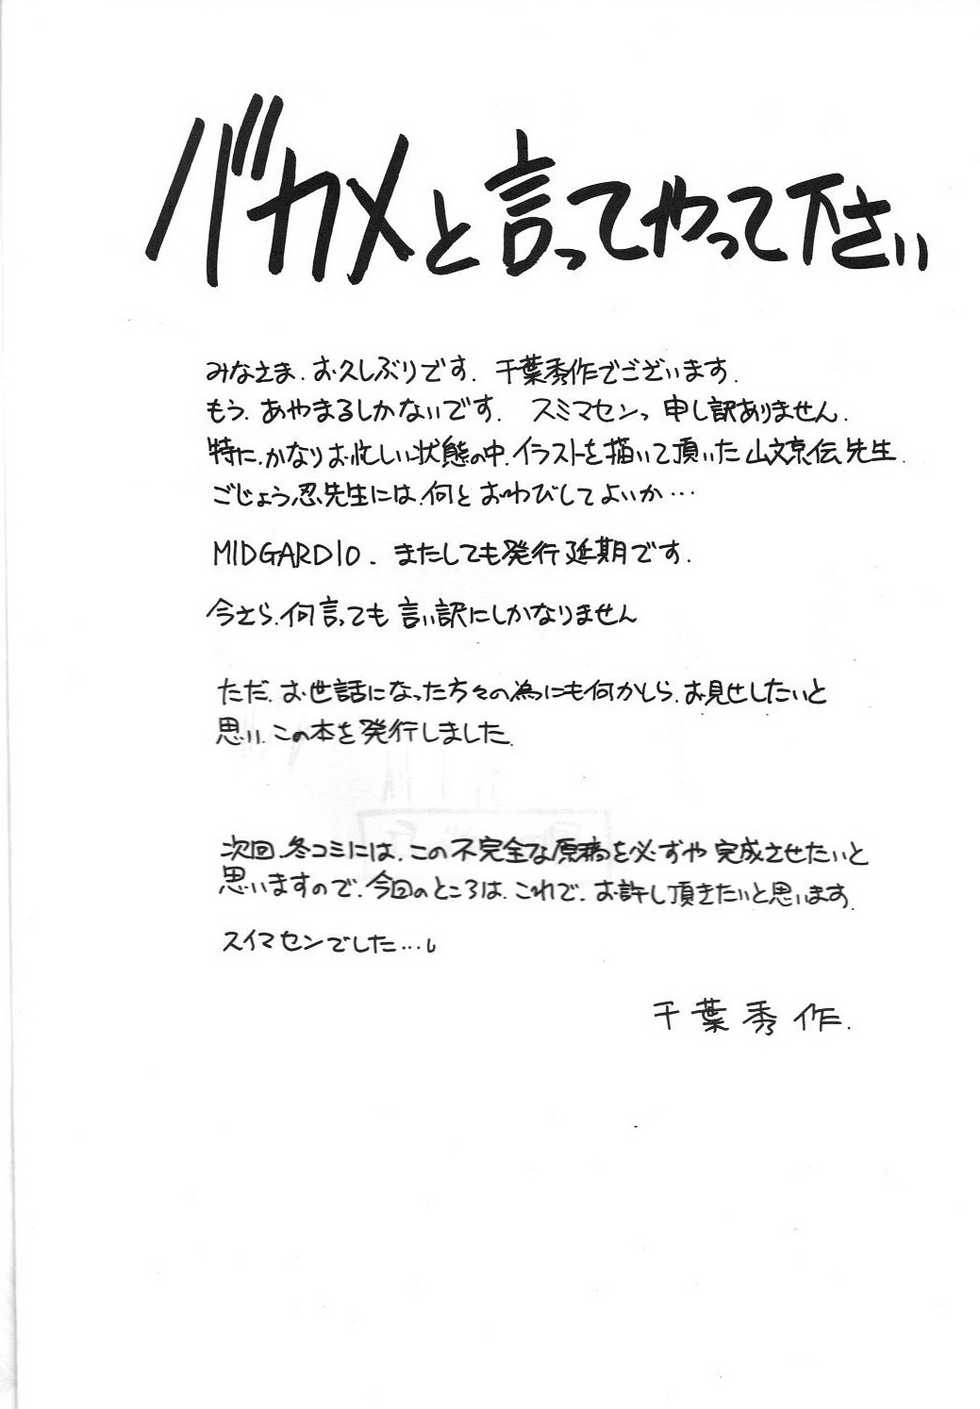 バカメと言ってやって下さい
みなさま、お久しぶりです。千葉秀作でございます。
もう、あやまるしかないです。スミマセンっ 申し訳ありません。
特に、かなりお忙しい状態の中、イラストを描いて頂いた山文京伝先生、
ごじょう忍先生には、何とおわびしてよいか…
MIDGARD10。またしても発行延期です。
今さら、何言っても言い訳にしかなりません
ただ、お世話になった方々の為にも何かしら、お見せしたいと
思い、この本を発行しました。
次回、冬コミには、この不完全な原稿を必ずや完成させたいと
思いますので、今回のところは、これで、お許し頂きたいと思います。
スイマセンでした…。
千葉秀作.